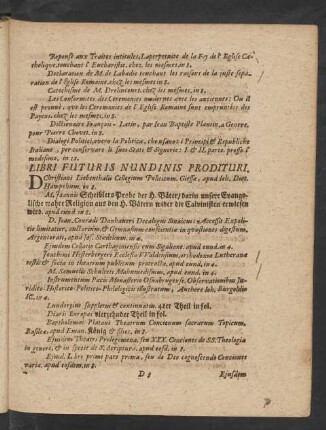 Reponse aux Traitez intitulez, La perpetuité de la Foy de l' Eglise Ca-
tholique touchant l' Eucharistie. chez les mesmes, in 8.
Declaration de M. de Labadie touchant les raisons de la juste sepa-
ration de l'Eglise Romaine, chez les mesmes in 8.
Catechisme de M. Drelincourt, chez les mesmes, in 8.
Les Conformitez des Ceremonies modernes avec les anciennes: Ou il
est prouvé, que les Ceremonies de l' Eglise Romaine sont empruntées des
Payens, chez les mesmes, in 8.
Dictionaire François-Latin, par Jean Baptiste Plantin, a Geneve,
pour Pierre Chouet, in 8.
Dialogi Politici, overo la Politica, che usano i Prencipi & Republiche
Italiane, per conservare li loro Stati & Signorie: I. & II. parte. presso i
medesimi, in 12.
LIBRI FUTURIS NUNDINIS PRODITURI,
Christiani Liebenthalii Collegium Politicum, Giessæ, apud Joh. Dan.
Hampelium, in 8.
M. Joannis Scheiblers Probe der H. Väter, darin unsere Evange-
lische wahre Religion aus den H. Vätern wider die Calvinisten erwiesen
wird. apud eund. in 8.
D. Joan. Conradi Danhaveri Decalogus Sinaicus: Accessit Expole-
mi limitatur, auctorium, & Gymnasium conscientiæ in quæstiones digestum,
Argentorati, apud Jos. Stædelium. in 4.
Ejusdem Collatio Carthaginensis cum Sigalione. apud eund. in 4.
Jonathani Hisbergeri Ecclesia Valdensium, orthodoxa Lutheranæ
testis & socia in theatrum publicum producta. apud eund. in 4.
M. Samuelis Schultets Mahummedismus. apud eund. in 4.
Instrumentum Pacis Monasterio Osnabrugense, Observationibus Ju-
ridico-Historico-Politico-Philologicis illustratum, Authore Joh. Burgoldensi
sc. in 4.
Lundorpius suppletus & continuatus. 4ter Theil in fol.
Diarii Europæi vierzehender Theil in fol.
Bartholomæi Platani Theatrum Concionum sacrarum Topicum,
Basileæ, apud Eman. König & filios, in 8.
Ejusdem Theatri Prolegomena, seu XXX. Conciones de SS. Theologia
in genere, & in specie de S. Scriptura, apud eosd. in 8.
Ejusd. Libr. primi pars prima, seu de Deo cognoscendo Conciones
variæ. apud eosdem. in 8.
D 3
Ejusdem